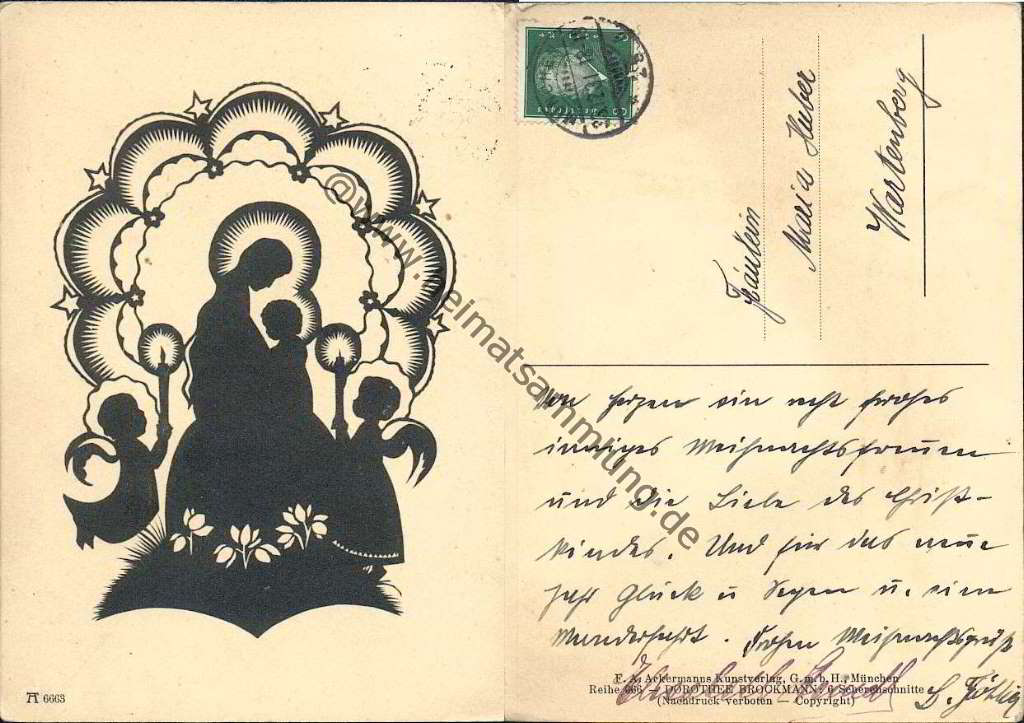 Fräulein
Maria Huber
Wartenberg
Von Herzen ein recht frohes
inniges Weihnachtsfreuen
und die Liebe des Christ-
kindes. Und für das neue
Jahr Glück u Segen u. ein
Wunderfahrt. Frohen Weihnachtsgruß
F. A. Ackermanns Kunstverlag, G. m. b. H., München
Reihe 666 — DOROTHEE BROCKMANN: 6 Scherenschnitte
(Nachdruck verboten — Copyright)
6663
@www.heimatsammlung.de